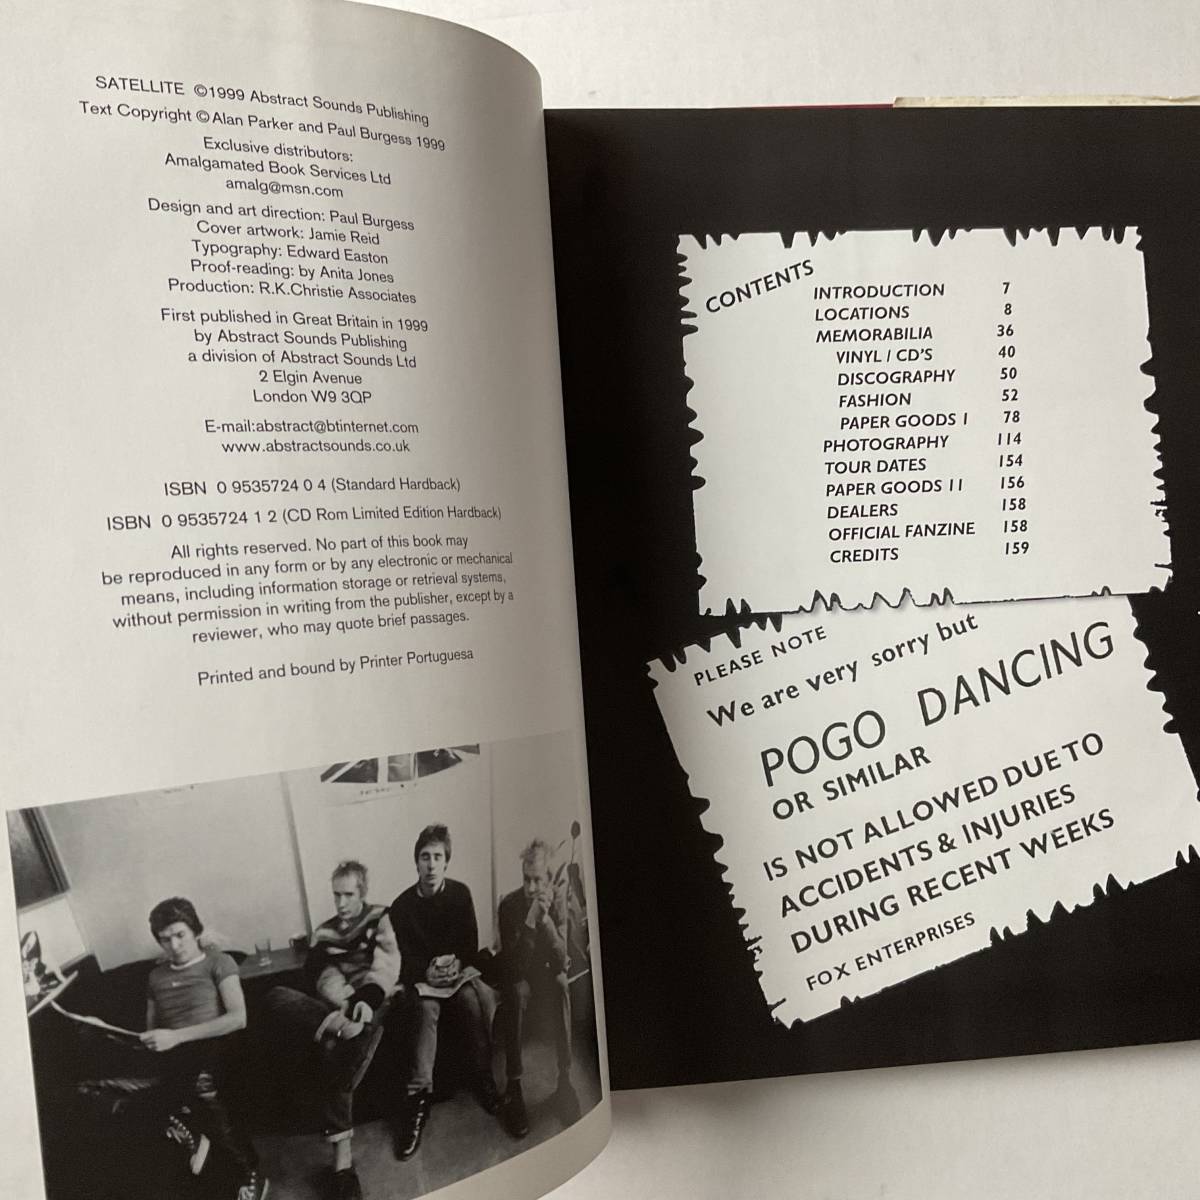 SATELLITE ©1999 Abstract Sounds Publishing
Text Copyright ©Alan Parker and Paul Burgess 1999
Exclusive distributors:
Amalgamated Book Services Ltd
amalg@msn.com
Design and art direction: Paul Burgess
Cover artwork: Jamie Reid
Typography: Edward Easton
Proof-reading: by Anita Jones
Production: R.K.Christie Associates
First published in Great Britain in 1999
by Abstract Sounds Publishing
a division of Abstract Sounds Ltd
2 Elgin Avenue
London W9 3QP
E-mail:abstract@btinternet.com
www.abstractsounds.co.uk
ISBN 0 9535724 0 4 (Standard Hardback)
ISBN 0 9535724 1 2 (CD Rom Limited Edition Hardback)
All rights reserved. No part of this book may
be reproduced in any form or by any electronic or mechanical
means, including information storage or retrieval systems,
without permission in writing from the publisher, except by a
reviewer, who may quote brief passages.
Printed and bound by Printer Portuguesa
CONTENTS
INTRODUCTION 7
LOCATIONS 8
MEMORABILIA 36
VINYL / CD'S 40
DISCOGRAPHY 50
FASHION 52
PAPER GOODS I 78
PHOTOGRAPHY 114
TOUR DATES 154
PAPER GOODS II 156
DEALERS 158
OFFICIAL FANZINE 158
CREDITS 159
PLEASE NOTE
We are very sorry but
POGO DANCING
OR SIMILAR
IS NOT ALLOWED DUE TO
ACCIDENTS & INJURIES
DURING RECENT WEEKS
FOX ENTERPRISES